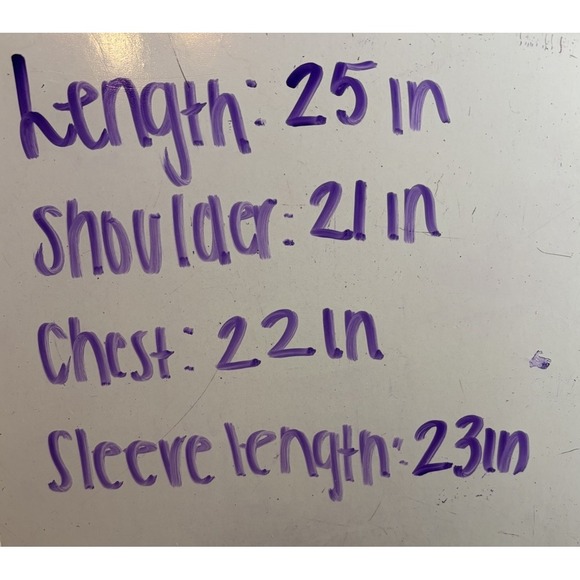 Length: 25 in
Shoulder: 21 in
Chest: 22 in
Sleeve length: 23in